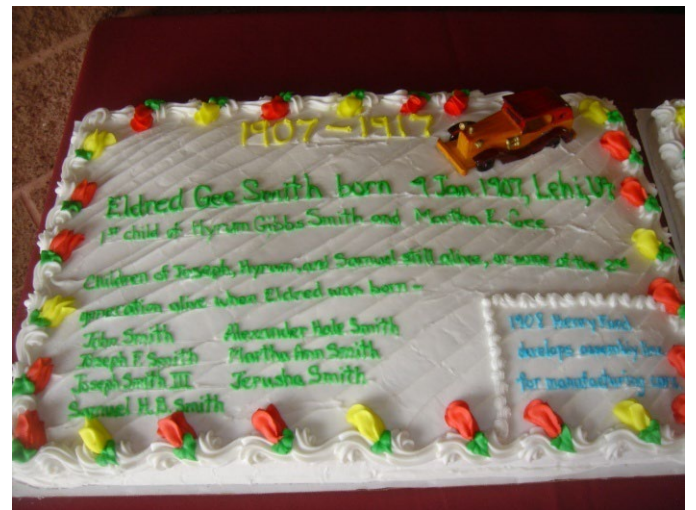 1907-1917
Eldred Gee Smith born 9 Jan. 1907, Lehi, Ut
1st child of Hyrum Gibbs Smith and Martha E. Gee
Children of Joseph, Hyrum, and Samuel still alive, or some of the 2nd
generation alive when Eldred was born-
John Smith
Joseph F. Smith
Joseph Smith III
Samuel H.B. Smith
Alexander Hale Smith
Martha Ann Smith
Jerusha Smith
1908 Henry Ford
develops assembly line
for manufacturing cars